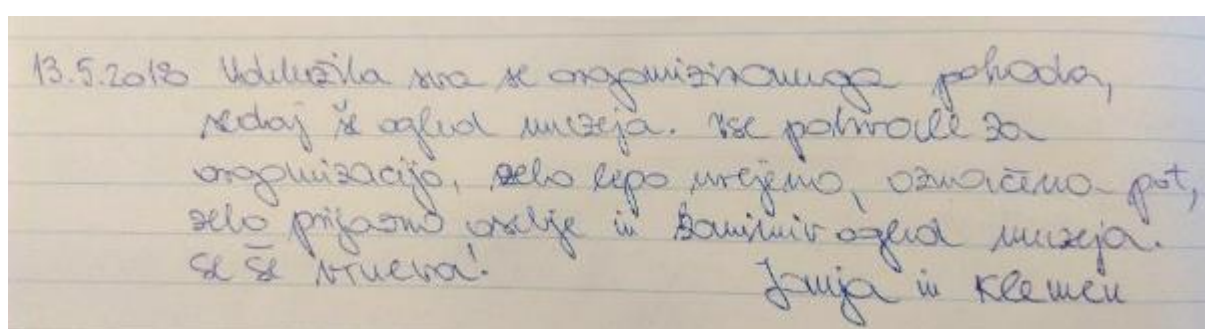 13.5.2018 Udeležila sva se organiziranega pohoda,
sedaj še ogled muzeja. Vse pohvale za
organizacijo, zelo lepo urejeno, označeno pot,
zelo prijazno osebje in zanimiv ogled muzeja.
Se še vrneva!
Janja in Klemen